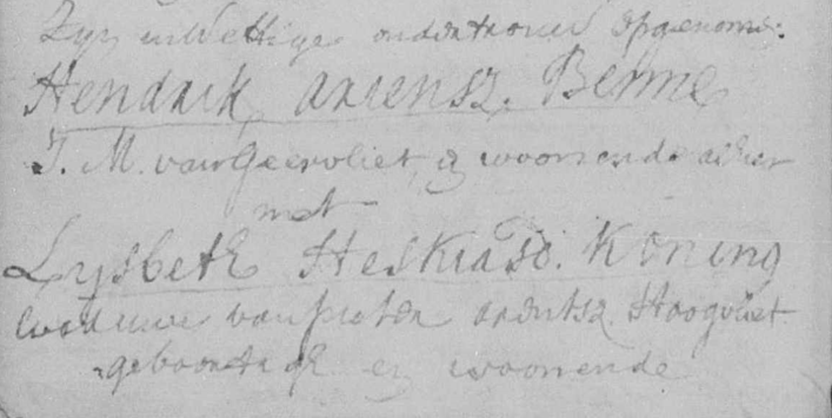 Zyn in Wettige ondertrouw opgenomen:
Hendrik ariensz. Benne
J. M. van Geervliet, en woonende alhier
met
Lysbeth Heskiasd. Koning
weduwe van pieter arentsz. Hoogvliet
geboortig en woonende